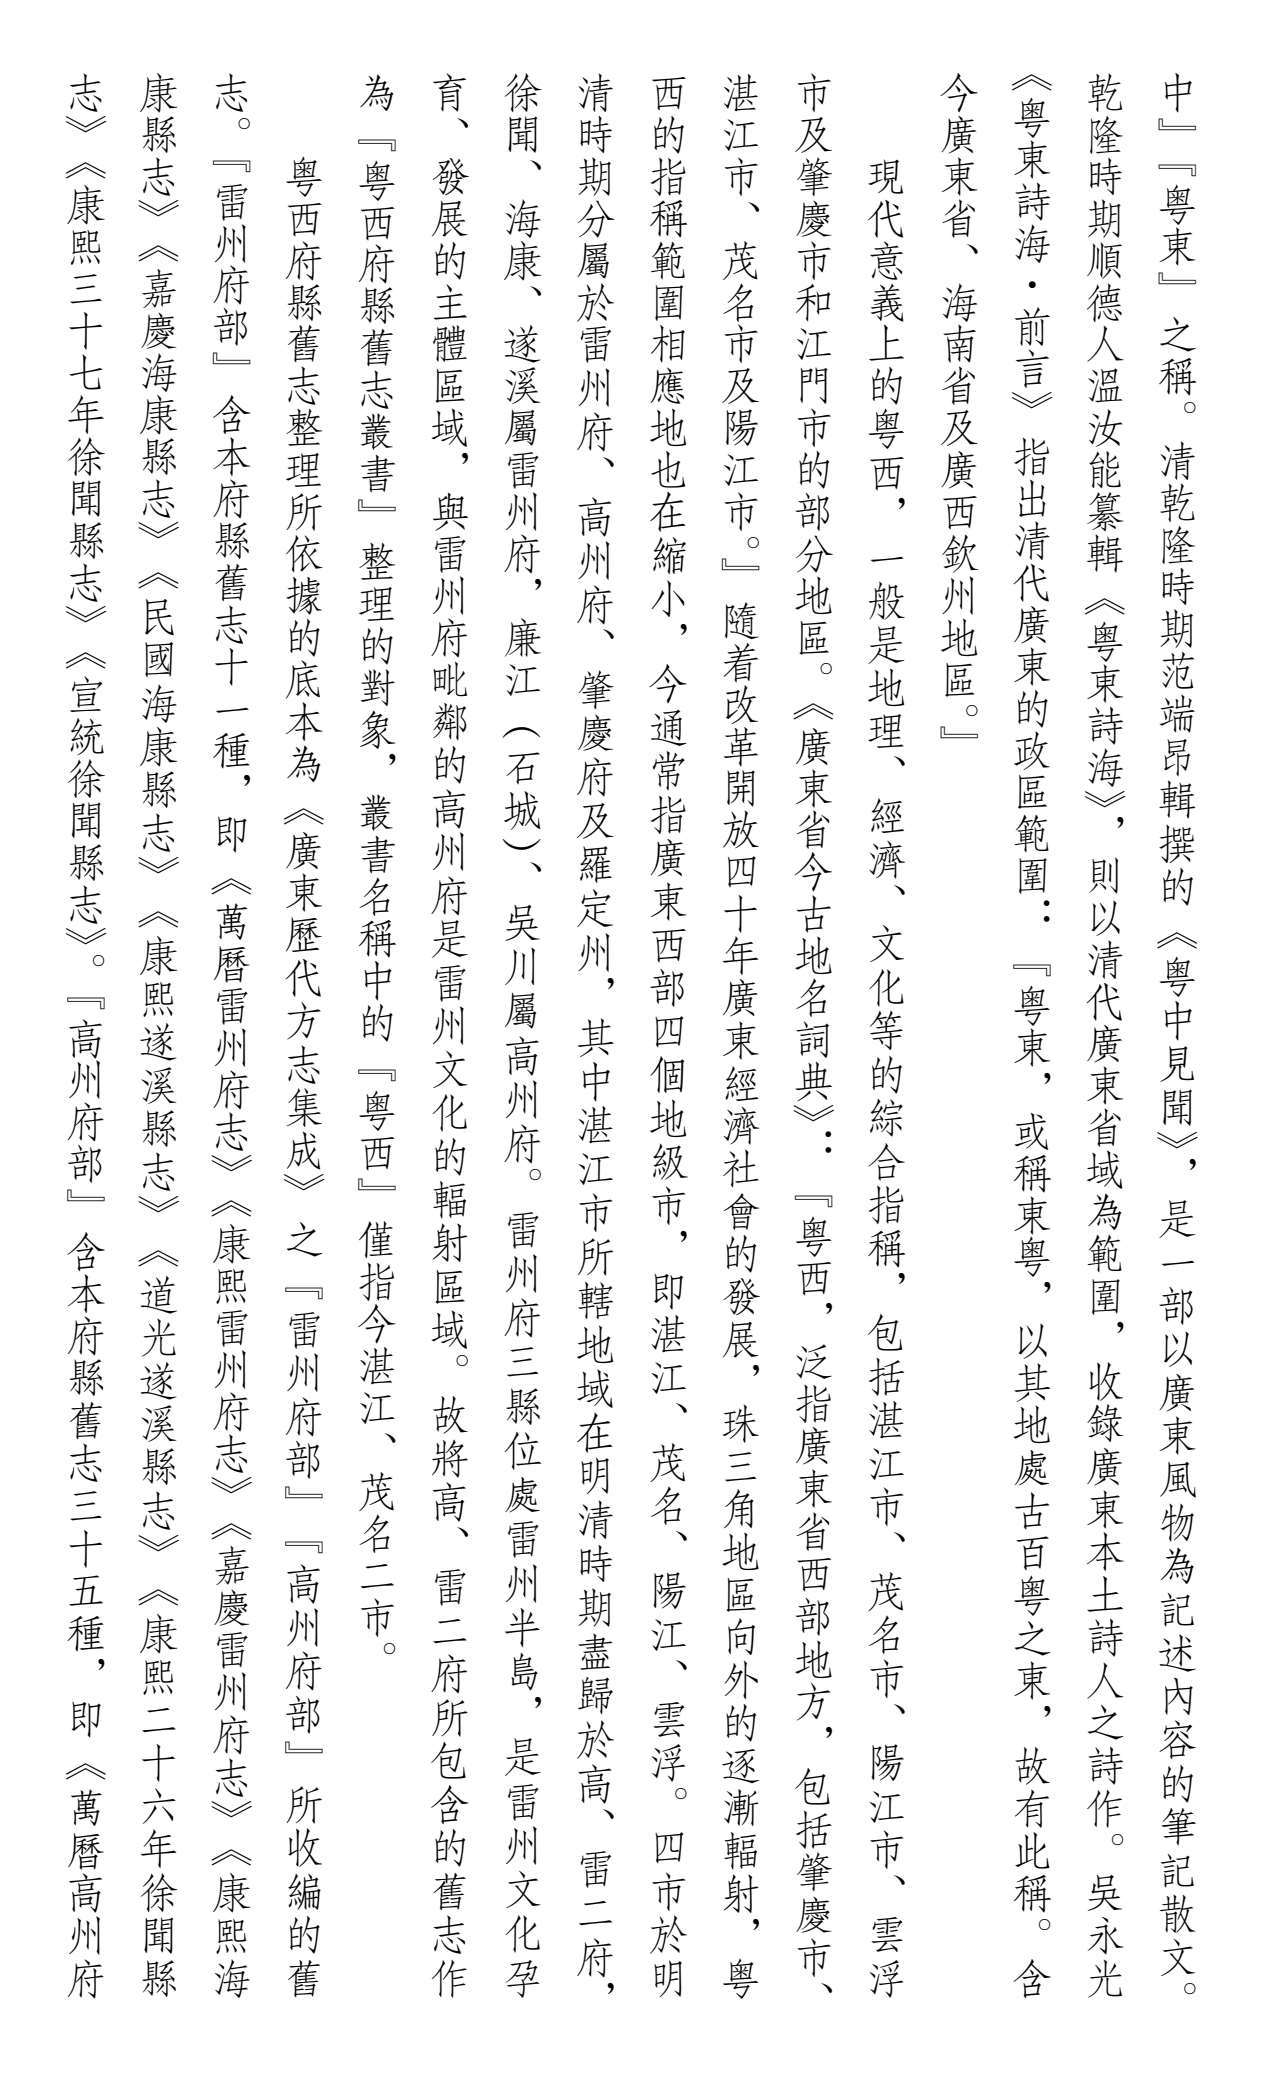 中』『粤東』之稱。清乾隆時期范端昂輯撰的《粤中見聞》，是一部以廣東風物為記述內容的筆記散文。
乾隆時期順德人溫汝能纂輯《粤東詩海》，則以清代廣東省域為範圍，收錄廣東本土詩人之詩作。吳永光
《粤東詩海·前言》指出清代廣東的政區範圍：『粤東，或稱東粤，以其地處古百粤之東，故有此稱。含
今廣東省、海南省及廣西欽州地區。』
現代意義上的粤西，一般是地理、經濟、文化等的綜合指稱，包括湛江市、茂名市、陽江市、雲浮
市及肇慶市和江門市的部分地區。《廣東省今古地名詞典》：『粤西，泛指廣東省西部地方，包括肇慶市、
湛江市、茂名市及陽江市。』隨着改革開放四十年廣東經濟社會的發展，珠三角地區向外的逐漸輻射，粤
西的指稱範圍相應地也在縮小，今通常指廣東西部四個地級市，即湛江、茂名、陽江、雲浮。四市於明
清時期分屬於雷州府、高州府、肇慶府及羅定州，其中湛江市所轄地域在明清時期盡歸於高、雷二府，
徐聞、海康、遂溪屬雷州府，廉江（石城）、吳川屬高州府。雷州府三縣位處雷州半島，是雷州文化孕
育、發展的主體區域，與雷州府毗鄰的高州府是雷州文化的輻射區域。故將高、雷二府所包含的舊志作
為『粤西府縣舊志叢書』整理的對象，叢書名稱中的『粤西』僅指今湛江、茂名二市。
粤西府縣舊志整理所依據的底本為《廣東歷代方志集成》之『雷州府部』『高州府部』所收編的舊
志。『雷州府部』含本府縣舊志十一種，即《萬曆雷州府志》《康熙雷州府志》《嘉慶雷州府志》《康熙海
康縣志》《嘉慶海康縣志》《民國海康縣志》《康熙遂溪縣志》《道光遂溪縣志》《康熙二十六年徐聞縣
志》《康熙三十七年徐聞縣志》《宣統徐聞縣志》。『高州府部』含本府縣舊志三十五種，即《萬曆高州府